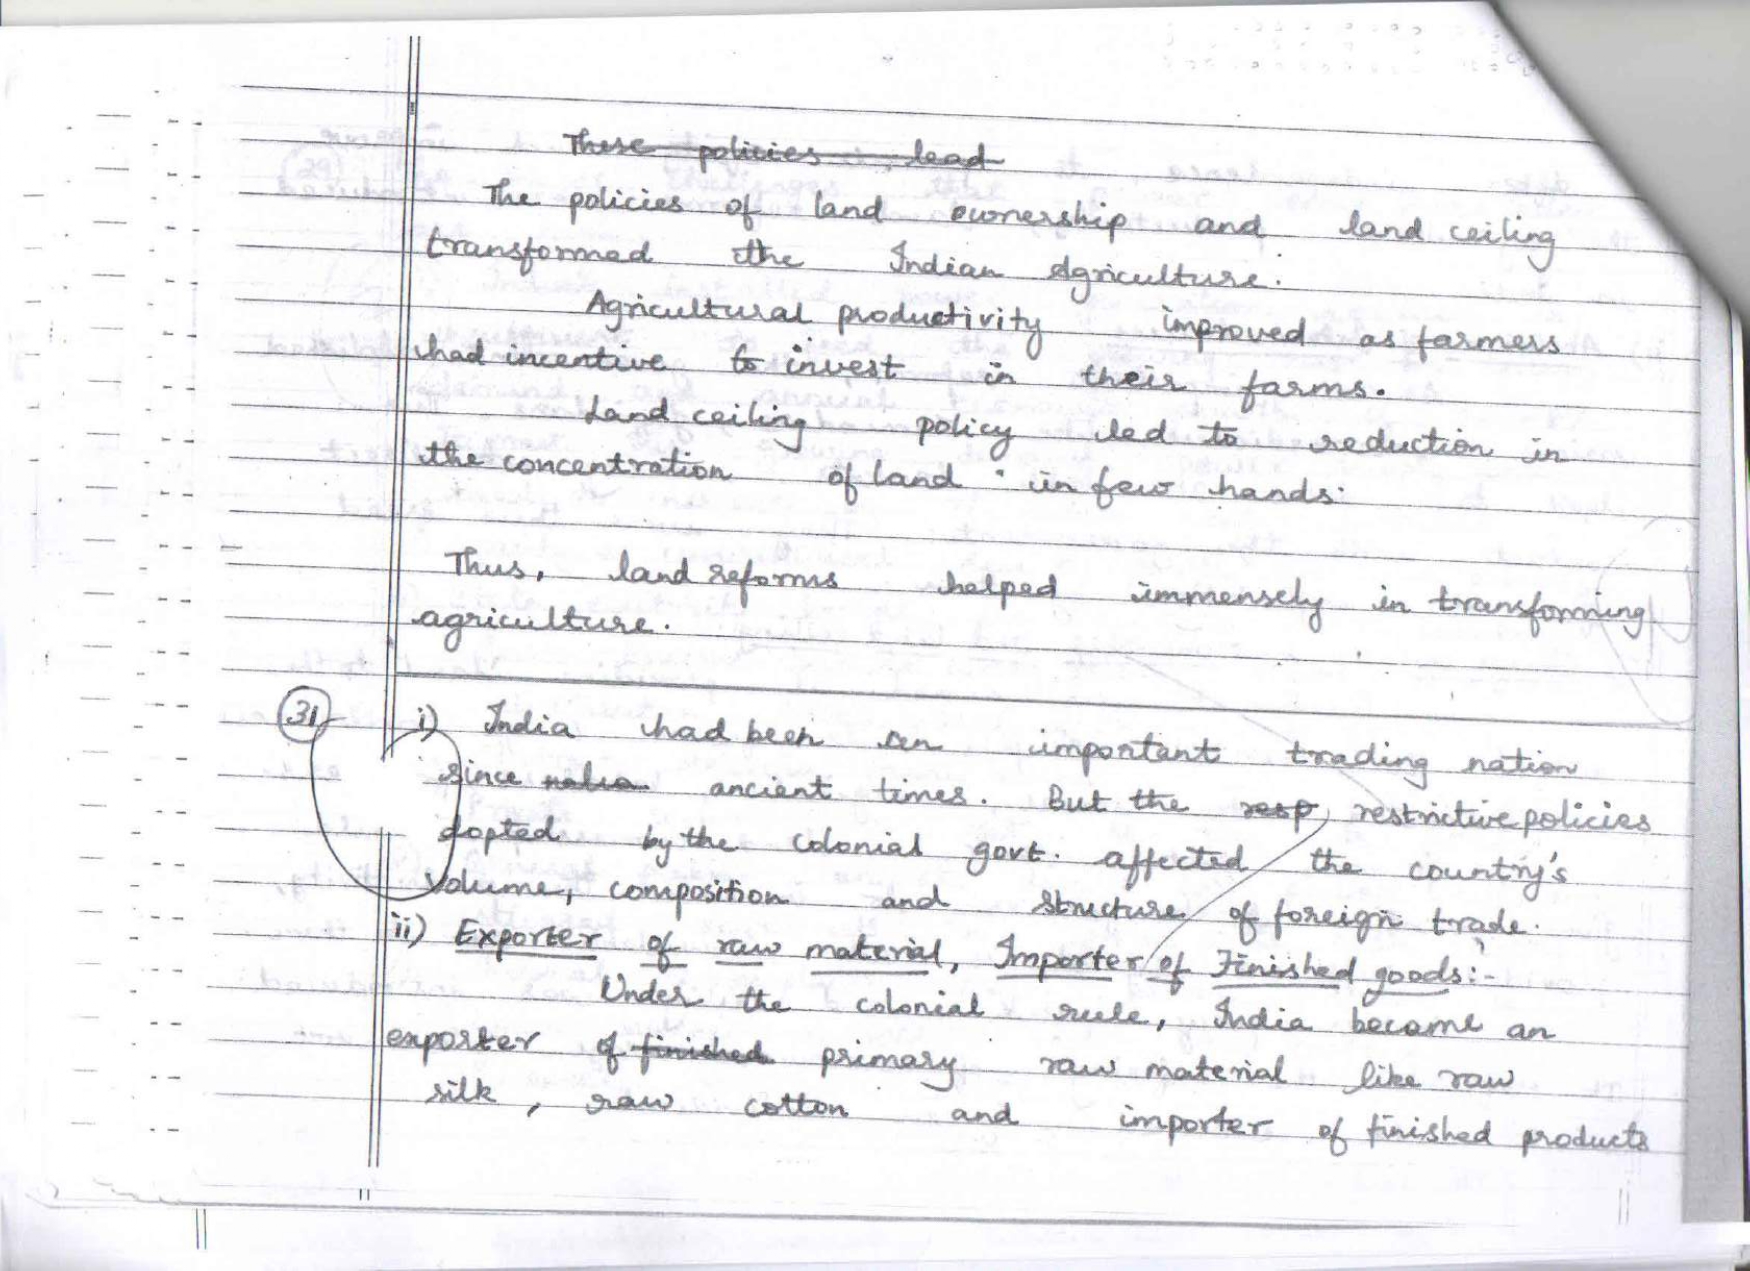 These policies, lead
The policies of land ownership and land ceiling
transformed the Indian Agriculture.
Agricultural productivity improved as farmers
had incentive to invest in their farms.
Land ceiling policy led to reduction in
the concentration of land in few hands.
Thus, land reforms helped immensely in transforming
agriculture.
31 i) India had been an important trading nation
since ancient times. But the resp restrictive policies
dopted by the colonial govt. affected the country's
volume, composition and structure of foreign trade.
ii) Exporter of raw material, Importer of Finished goods:-
Under the colonial rule, India became an
exporter of finished primary raw material like raw
silk, raw cotton and importer of finished products